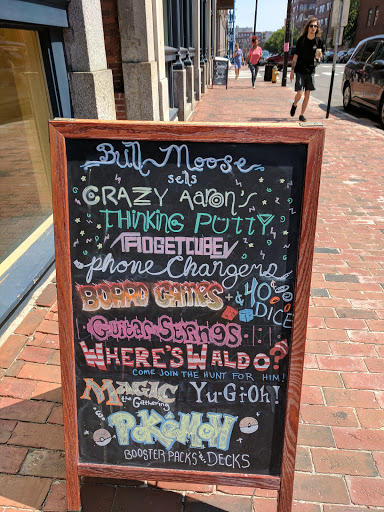 Bull Moose
sells
CRAZY AARON'S
THINKING PUTTY
FIDGETCUBE
phone Chargers
BOARD GAMES + 40¢ DICE
Guitar Strings
WHERE'S WALDO?
COME JOIN THE HUNT FOR HIM!
MAGIC the Gathering Yu-Gi-Oh!
POKéMON
BOOSTER PACKS & DECKS